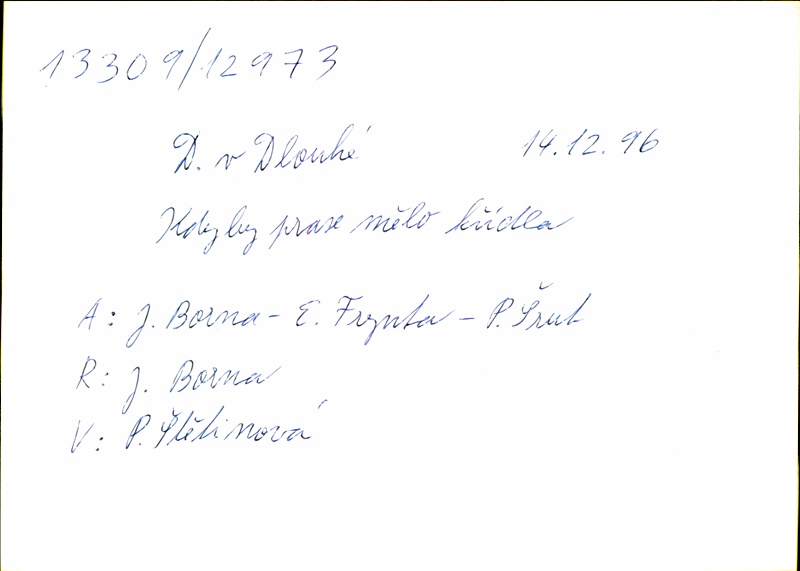 13309/12973
D. v Dlouhé 14.12.96
Kdyby prase mělo křídla
A: J. Borna - E. Frynta - P. Šrut
R: J. Borna
V: P. Štětinová